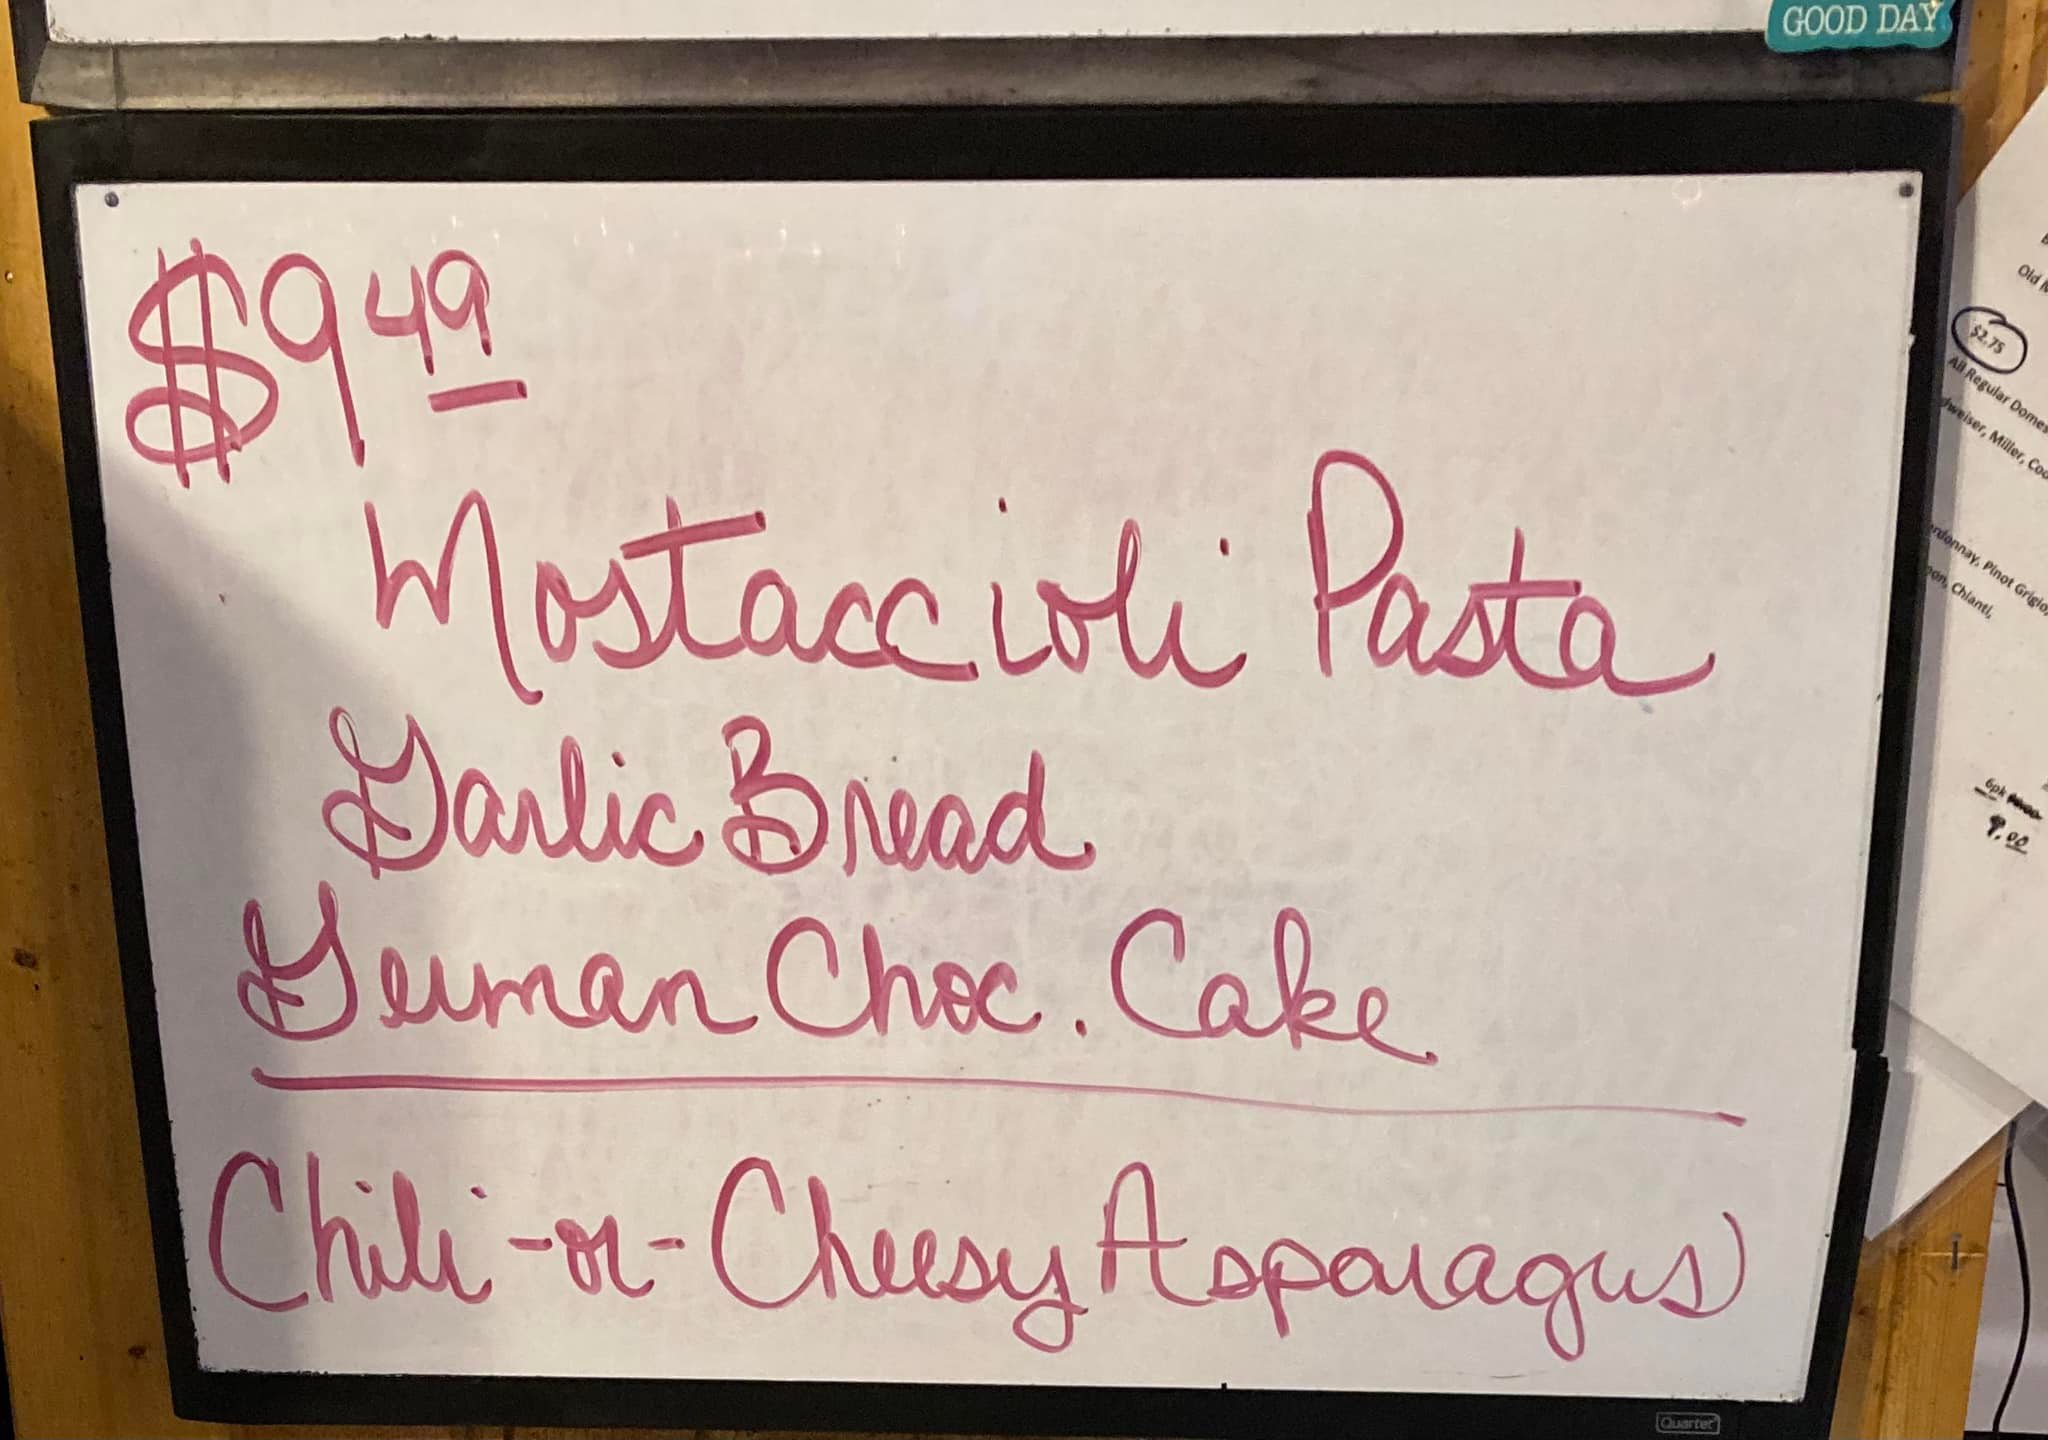 GOOD DAY
$9 49
Mostaccioli Pasta
Garlic Bread
German Choc. Cake
Chili -or- Cheesy Asparagus
Quartet
Old
$2.75
All Regular
Miller,
Pinot Grigio,
Chianti,
6pk
9.00